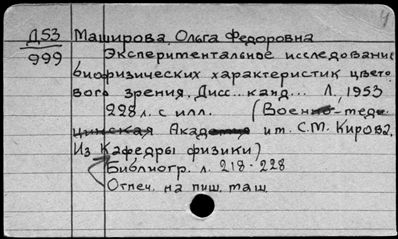 Д53 Маширова, Ольга Федоровна
999 Экспериментальное исследование
биофизических характеристик цвето-
вого зрения. Дисс... канд... Л, 1953
228 л. с илл. (Военно-меди-
цинская Академия им. С.М. Кирова.
Из Кафедры физики)
Библиогр. л. 218-228
Отпеч. на пиш. маш.